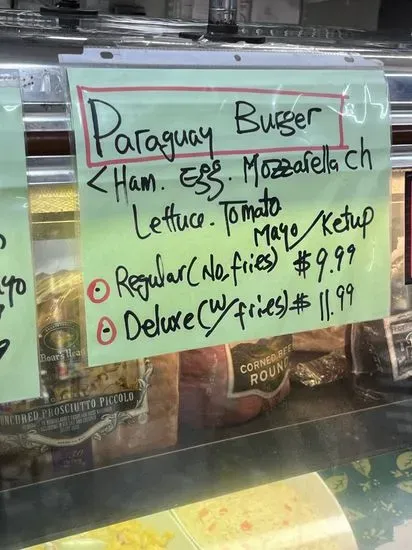 Paraguay Burger
<Ham. Egg. Mozzarella ch
Lettuce. Tomato
Mayo/Ketup
Regular (No, fries) $9.99
Deluxe (W/fries) $ 11.99
Boar's Head
CORNED BEEF
ROUND
UNCURED PROSCIUTTO PICCOLO